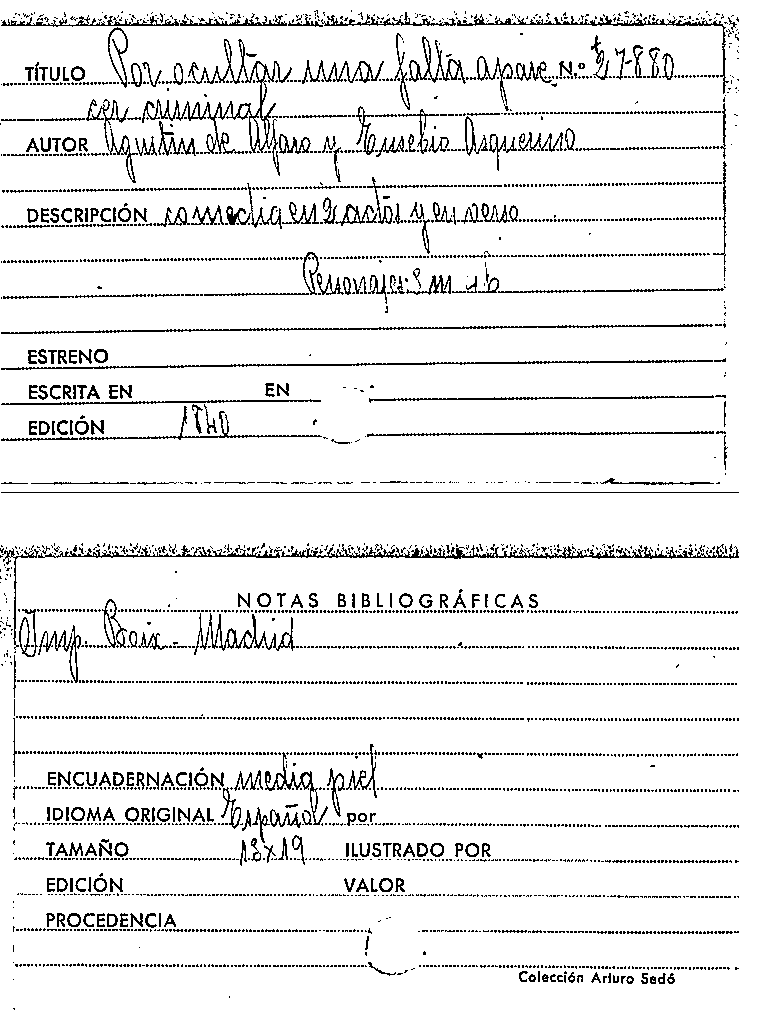 TÍTULO Por ocultar una falta apare N.º 27-880
cer criminal
AUTOR Agustín de Alfaro y Eusebio Asquerino
DESCRIPCIÓN comedia en 3 actos y en verso
Personajes: 3 m 4 h
ESTRENO
ESCRITA EN EN
EDICIÓN 1840
NOTAS BIBLIOGRÁFICAS
Imp. Boix - Madrid
ENCUADERNACIÓN media piel
IDIOMA ORIGINAL Español por
TAMAÑO 13x19 ILUSTRADO POR
EDICIÓN VALOR
PROCEDENCIA
Colección Arturo Sedó